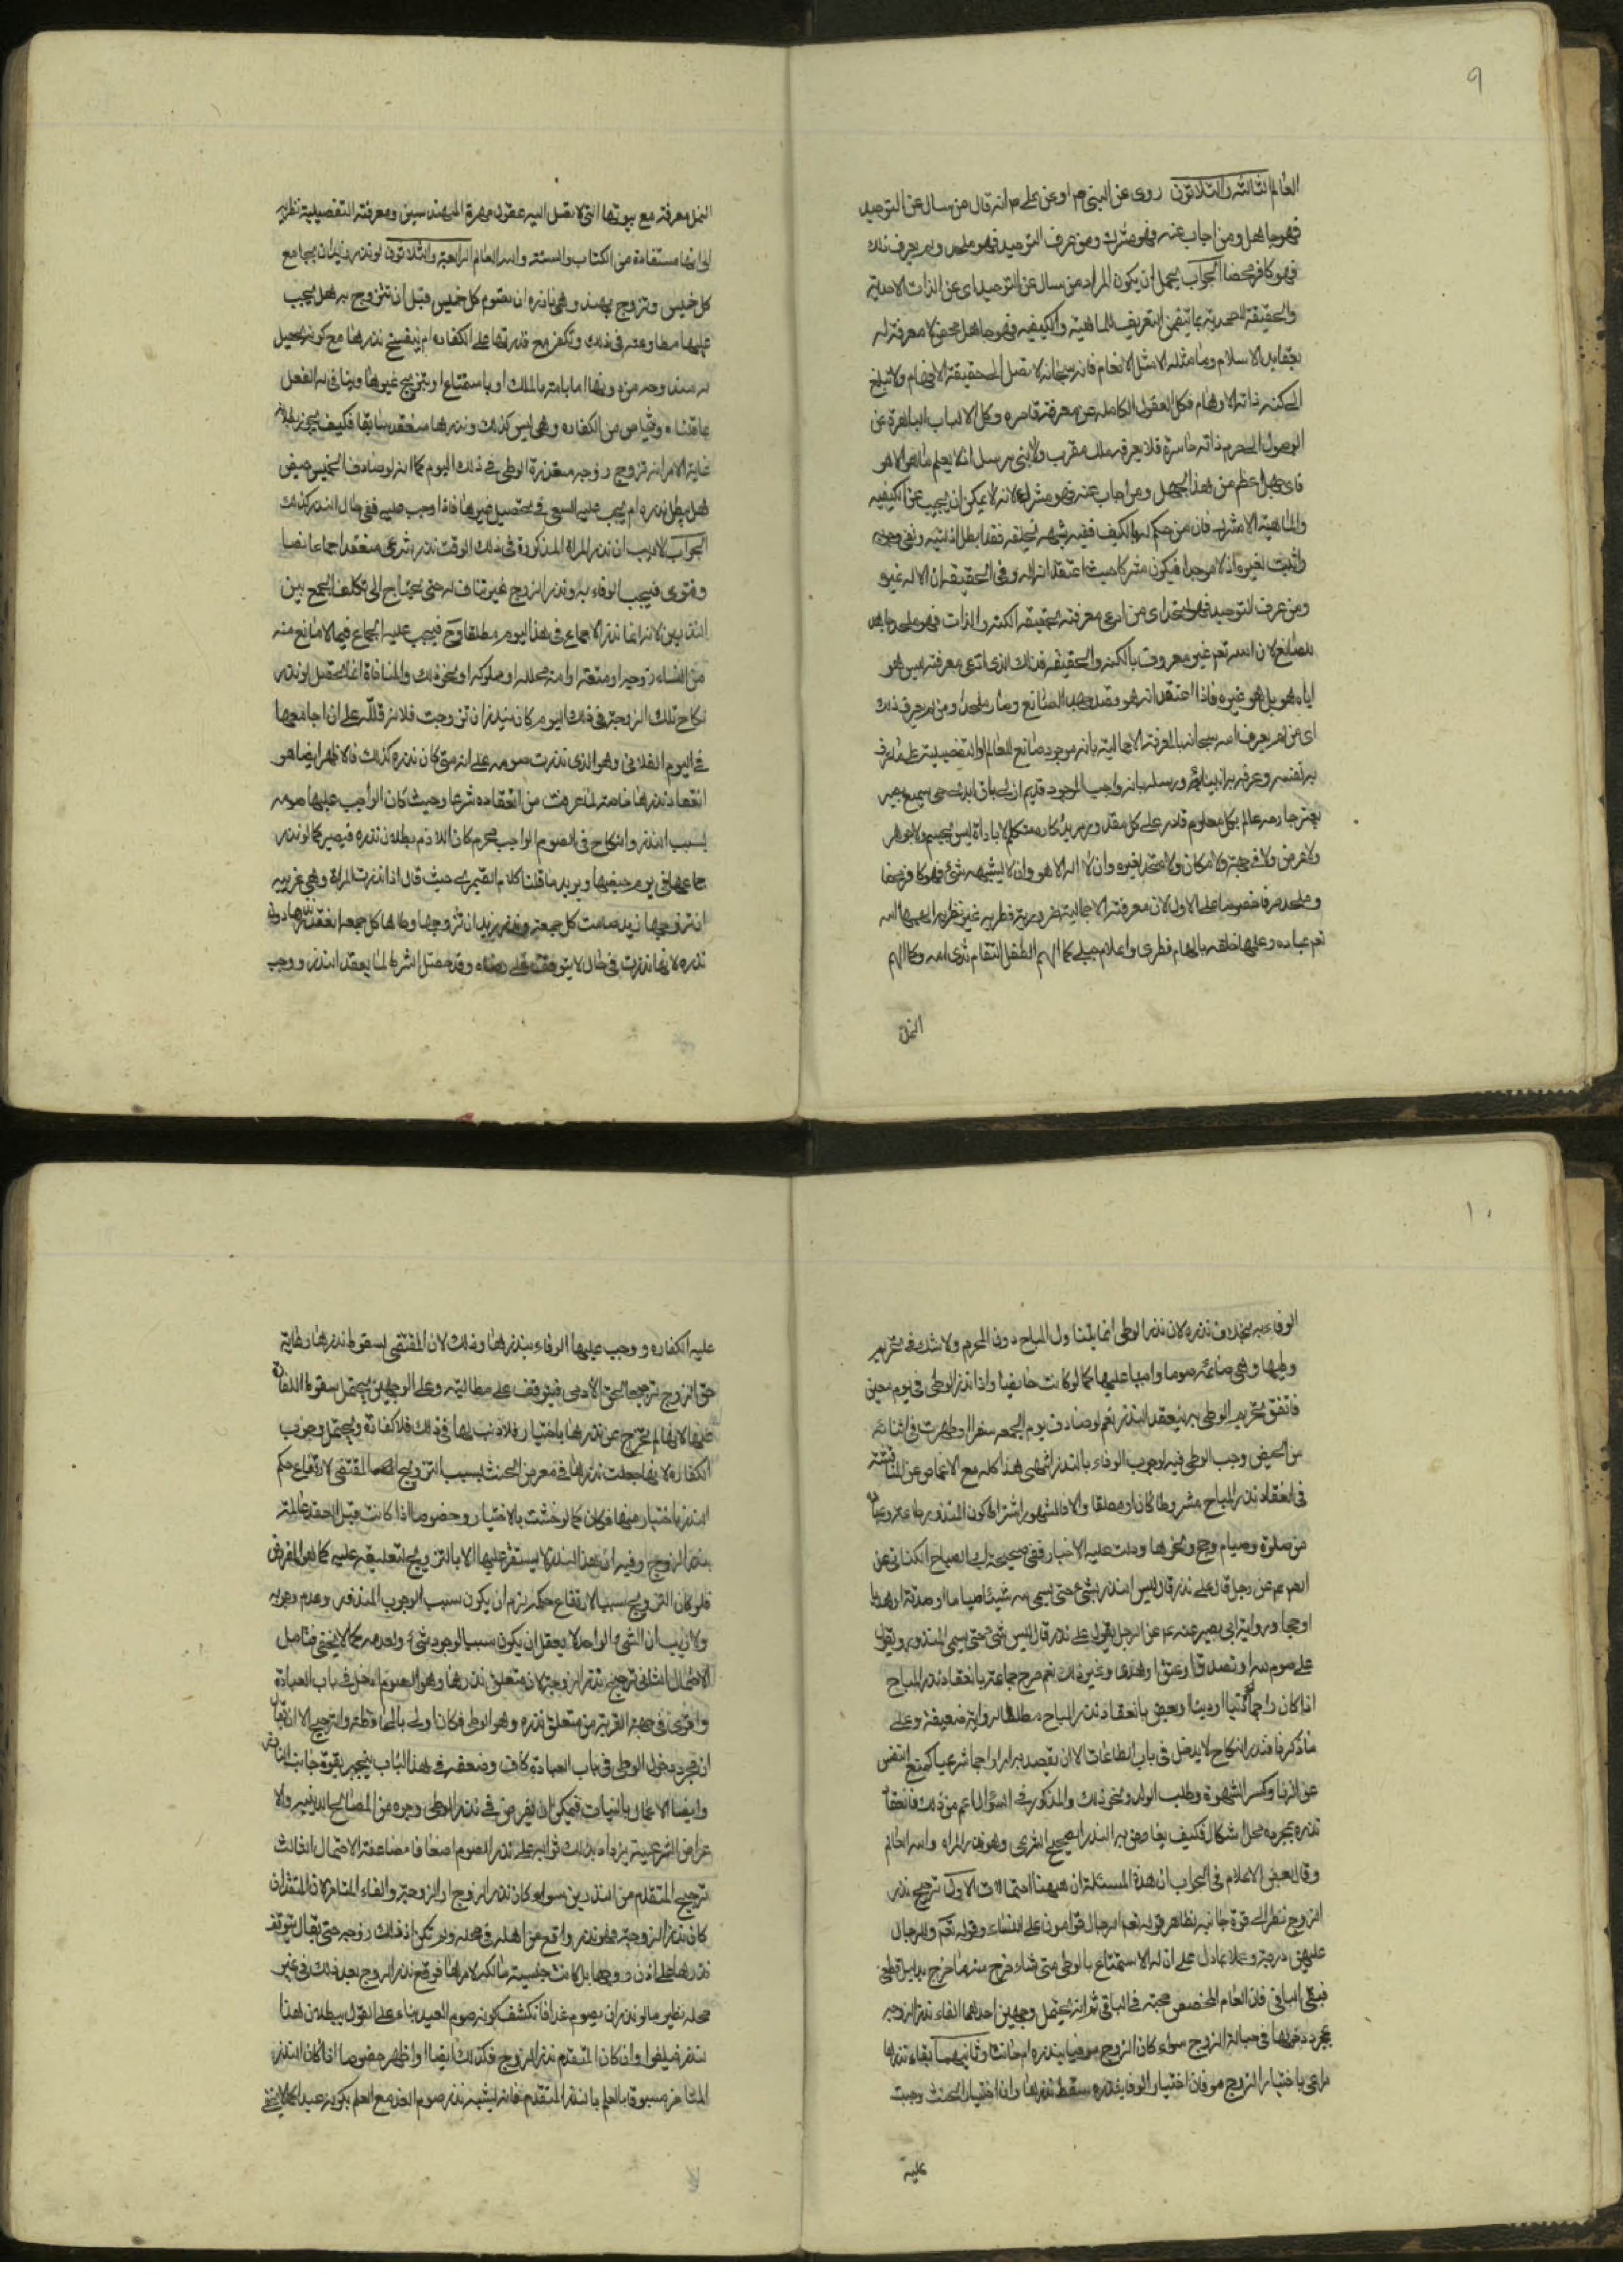 ٩
العالم الثالثة والثلاثون روى عن النبي ص او عن علي م انه قال من سال عن التوحيد
فهو جاهل ومن اجاب عنه فهو مشرك ومن عرف التوحيد فهو ملحد ومن لم يعرف ذلك
فهو كافر محضا الجواب يحمل ان يكون المراد من سال عن التوحيد اى عن الذات الاحدية
والحقيقة الصمدية بما يتضمن التعريف للماهية والكيفية فهو جاهل محض لا معرفة له
بعقايد الاسلام وما مثله الا مثل الانعام فانه سبحانه لا تصل الى حقيقته الافهام ولا تبلغ
الى كنه ذاته الاوهام فكل العقول الكاملة عن معرفته قاصره وكل الالباب الباهرة عن
الوصول الى حرم ذاته حاسرة فلا يعرفه ملك مقرب ولا نبى مرسل اذ لا يعلم ما هو الا هو
فاى جهل اعظم من هذا الجهل ومن اجاب عنه فهو مشرك لانه لا يمكن ان يجيب عن الكيفيه
والماهية الا مشرك فان من حكم له بالكيف ففيه شبهه بخلقه فقد ابطل ذاتيته ونفى وجوده
واثبت لغيره اذ لا موجدا فيكون مشركا حيث اعتقد انه اله وفى الحقيقه ان الاله غيره
ومن عرف التوحيد فهو ملحد اى من ادعى معرفته بحقيقه الكنه والذات فهو ملحد وجاهد
للصانع لان الله تعم غير معروف بالكنه والحقيقه فذلك الذى ادعى معرفته ليس هو
اياه هو بل هو غيره فاذا اعتقد انه هو وقصد جهد الصانع وصار ملحدا ومن لم يعرف ذلك
اى من لم يعرف الله سبحانه بالمعرفة الاجمالية بانه موجود صانع للعالم او التفصيلية على ما عرف
به نفسه وعرفه به انبيائه ورسله بانه واجب الوجود قديم ازلى باق ابدى حى سميع بصير
بغير جارحه عالم بكل معلوم قادر على كل مقدور مريد كاره متكلم لا باداة ليس بجسم ولا جوهر
ولا عرض ولا فى جهة ولا مكان ولا متحد بغيره وان لا اله الا هو وان لا يشبهه شئ فهو كافر محضا
وملحد صرفا خصوصا على الاول لان معرفته الاجمالية ضرورية فطريه غير نظريه الهمها الله
تعم عباده وعلمها خلقه بالهام فطرى واعلام جبلى كما الهم الطفل التقام ثدى امه وكما الهم
النحل
النحل معرفة مع بيوتها التى لا تصل اليه عقول مهرة المهندسين ومعرفته التفصيلية نظريه
الا انها مستفادة من الكتاب والسنه والله العالم الرابعة والثلاثون لو نذر زيد ان يجامع
كل خميس وتزوج بهند وهى ناذره ان تصوم كل خميس قبل ان تتزوج به هل يجب
عليها مطاوعته فى ذلك وتكفر مع قدرتها على الكفاره ام ينفسخ نذرها مع كونه يحيل
له مندوحه من دونها اما بامته بالملك او باستمتاع او بتزويج غيرها وينافى له الفعل
ما قلناه وبخاص من الكفاره وهى ليس كذلك ونذرها منعقد سابقا فكيف يجوز بطلانه
غاية الامر انه تزوج زوجه متعذرة الوطى فى ذلك اليوم كما انه لو صادف الخميس حيض
هل يبطل نذره ام يجب عليه السعى فى تحصيل غيرها فاذا وجب عليه ففى حال النذر كذلك
الجواب لا ريب ان نذر المراة المذكورة فى ذلك الوقت نذر شرعى منعقد اجماعا نصا
وفتوى فيجب الوفاء به ونذر الزوج غير مناف له حتى يحتاج الى تكلف الجمع بين
النذرين لانه انما نذر الاجماع فى هذا اليوم مطلقا وح فيجب عليه الجماع فيما لا مانع منه
من النساء زوجه او متعة او امته محلله او مملوكه او نحو ذلك والمنافاة انما تحصل لو نذر
نكاح تلك الزوجة فى ذلك اليوم كان ينذر ان تزوجت فلانة فلله على ان اجامعها
فى اليوم الفلانى وهو الذى نذرت صومه على انه متى كان نذره كذلك فالاظهر ايضا هو
انعقاد نذرها خاصة لما عرفت من انعقاده شرعا وحيث كان الواجب عليها صومه
بسبب النذر والنكاح فى الصوم الواجب محرم كان اللازم بطلان نذره فيصير كما لو نذر
جماعها فى يوم حيضها ويريد ما قلنا كلام القيمرى حيث قال اذا نذرت المراة وهى عزبه
ان تزوجها زيد صامت كل جمعة ونذر زيد ان تزوجها وطاها كل جمعه انعقد نذرها دون
نذره لانها نذرت فى حال لا يتوقف على رضاه وقد حصل الشرط لما يعقد النذر ووجب
١٠
الوفاء به بخلاف نذره لان نذر الوطى انما يتناول المباح دون المحرم ولا شك فى تحريم
وطيها وهى صائمه صوما واجبا عليها كما لو كانت حايضا واذا نذر الوطى فى يوم معين
فاتفق تحريم الوطى به ينعقد النذر نعم لو صادف يوم الجمعه سفرا او طهرت فى اثنائه
من الحيض وجب الوطى فيه لوجوب الوفاء بالنذر انتهى هذا كله مع الاغماض عن المناقشة
فى انعقاد نذر المباح مشروطا كان او مطلقا والا فالمشهور اشتراط كون المنذور طاعة وعبادة
من صلوة وصيام وحج ونحوها ودلت عليه الاخبار ففى صحيحة ابى الصباح الكنانى عن
ابى عبد الله عم عن رجل قال على نذر قال ليس النذر بشئ حتى يسمى لله شيئا صياما او صدقة او هديا
او حجا ورواية ابى بصير عنه عم عن الرجل يقول على نذر قال ليس شئ حتى يسمى المنذور ويقول
على صوم لله او تصدق او عتق او هدى وغير ذلك نعم صرح جماعة بانعقاد نذر المباح
اذا كان راجحا دنيا او دينا وبعض بانعقاد نذر المباح مطلقا لرواية ضعيفة وعلى
ما ذكرنا فنذر النكاح لا يدخل فى باب الطاعات الا ان يقصد به امرا راجحا شرعيا كمنع النفس
عن الزنا وكسر الشهوة وطلب الولد ونحو ذلك والمذكور فى السؤال اعم من ذلك فانعقاد
نذره بمجرده محل اشكال فكيف يعارض به النذر الصحيح الشرعى وهو نذر المراه والله العالم
وقال بعض الاعلام فى الجواب ان هذه المسئلة ان هيهنا احتمالات الاول ترجيح نذر
الزوج نظرا الى قوة جانبه بظاهر قوله تعم الرجال قوامون على النساء وقوله تعم وللرجال
عليهن درجة وعملا بما دل على ان له الاستمتاع بالوطى متى شاء خرج منه ما خرج بدليل قطعى
فبقى الباقى فان العام المخصص حجة فى الباقى ثم انه يحتمل وجهين احدهما الغاء نذر الزوجه
بمجرد دخولها فى حبالة الزوج سواء كان الزوج موفيا بنذره ام حانثا وثانيهما بقاء نذرها
مراعى باختيار الزوج موفان اختيار الوفا بنذره سقط نذرها وان اختيار الحنث وجبت
عليه
عليه الكفاره ووجب عليها الوفاء بنذرها وذلك لان المقتضى لسقوط نذرها رعاية
حق الزوج ترجيحا لحق الادمى فيتوقف على مطالبته وعلى الوجهين يحتمل سقوط الكفارة
عنها لانها لم تخرج عن نذرها باختيار فلا ذنب لها فى ذلك فلا كفارة ويحتمل وجوب
الكفاره لانها جعلت نذرها فى معرض الحنث بسبب التزويج المقتضى لارتفاع حكم
النذر باختيار منها فكان كما لو خشت بالاختيار وخصوصا اذا كانت قبل العقد عالمة
بنذر الزوج وفيه ان هذا النذر لا يستقر عليها الا بالتزويج لتعليقه عليه كما هو المفروض
فلو كان التزويج سببا لارتفاع حكمه لزم ان يكون سبب الوجوب المنذور وعدم وجوبه
ولا ريب ان الشئ الواحد لا يعقل ان يكون سببا لوجود شئ ولعدمه كما لا يخفى فتامل
الاحتمال الثانى ترجيح نذر الزوجة لان متعلق نذرها وهو الصوم ادخل فى باب العبادة
واقوى فى جهة القربة من متعلق نذره وهو الوطى فكان اولى بالمحافظة والترجيح الا ان يقال
ان مجرد دخول الوطى فى باب العبادة كاف وضعفه فى هذا الباب ينجبر بقوة جانب الناذر
وايضا الاعمال بالنيات فيمكن ان يفرض فى نذر الوطى وجوه من المصالح الدينيه والا
غراض الشرعية يزداد بذلك ثوابه على نذر الصوم اضعافا مضاعفة الاحتمال الثالث
ترجيح المتقدم من النذرين سواء كان نذر الزوج او الزوجة والغاء المتاخر لان المتقدم ان
كان نذر الزوجة فهو نذر واقع من اهله فى محله ولم تكن اذ ذاك زوجه حتى يقال بتوقف
نذرها على اذن زوجها بل كانت خلية مالكه لامرها فوقع نذر الزوج بعد ذلك فى غير
محله نظير ما لو نذر ان يصوم غدا فانكشف كونه صوم العيد بناء على القول ببطلان هذا
النذر فيلغوا وان كان المتقدم نذر الزوج فكذلك ايضا واظهر خصوصا اذا كان النذر
المتاخر مسبوقا بالعلم بالنذر المتقدم فانه يشبه نذر صوم الغد مع العلم بكونه عيدا كما لا يخفى